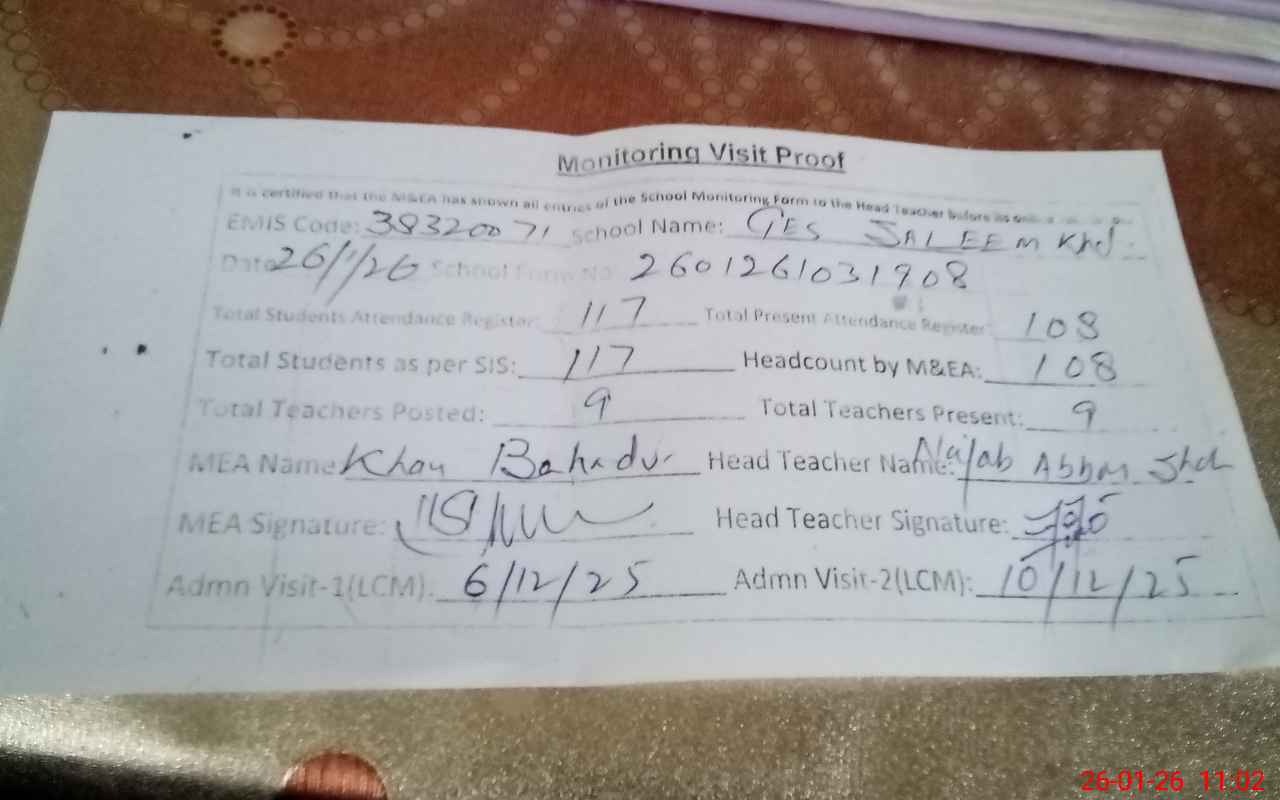 Monitoring Visit Proof
It is certified that the M&EA has shown all entries of the School Monitoring Form to the Head Teacher before its
EMIS Code: 38320071 School Name: GES SALEEM Khel
Date 26/1/26 School Form No: 2601261031908
Total Students Attendance Register: 117 Total Present Attendance Register: 108
Total Students as per SIS: 117 Headcount by M&EA: 108
Total Teachers Posted: 9 Total Teachers Present: 9
MEA Name: Khan Bahadur Head Teacher Name: Najab Abbas
MEA Signature: Head Teacher Signature:
Admn Visit-1(LCM): 6/12/25 Admn Visit-2(LCM): 10/12/25
26-01-26 11:02